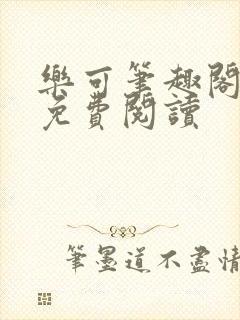 樂可筆趣閣
免費閱讀
筆墨道不盡情